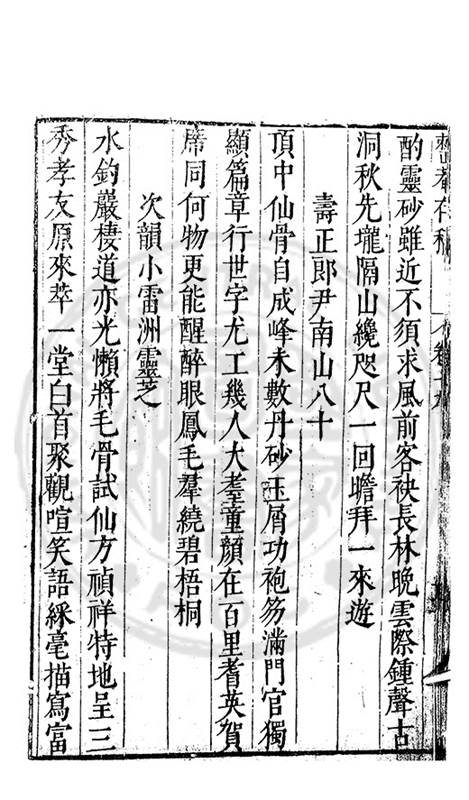 酌靈砂雖近不須求風前客袂長林晚雲際鍾聲古
洞秋先壠隔山纔咫尺一回瞻拜一來遊
壽正郎尹南山八十
頂中仙骨自成峰未數丹砂玉屑功袍笏滿門官獨
顯篇章行世字尤工幾人大耋童顏在百里耆英賀
席同何物更能醒醉眼鳳毛羣繞碧梧桐
次韻小雷洲靈芝
水釣巖棲道亦光懶將毛骨試仙方禎祥特地呈三
秀孝友原來萃一堂白首聚觀喧笑語綵毫描寫富